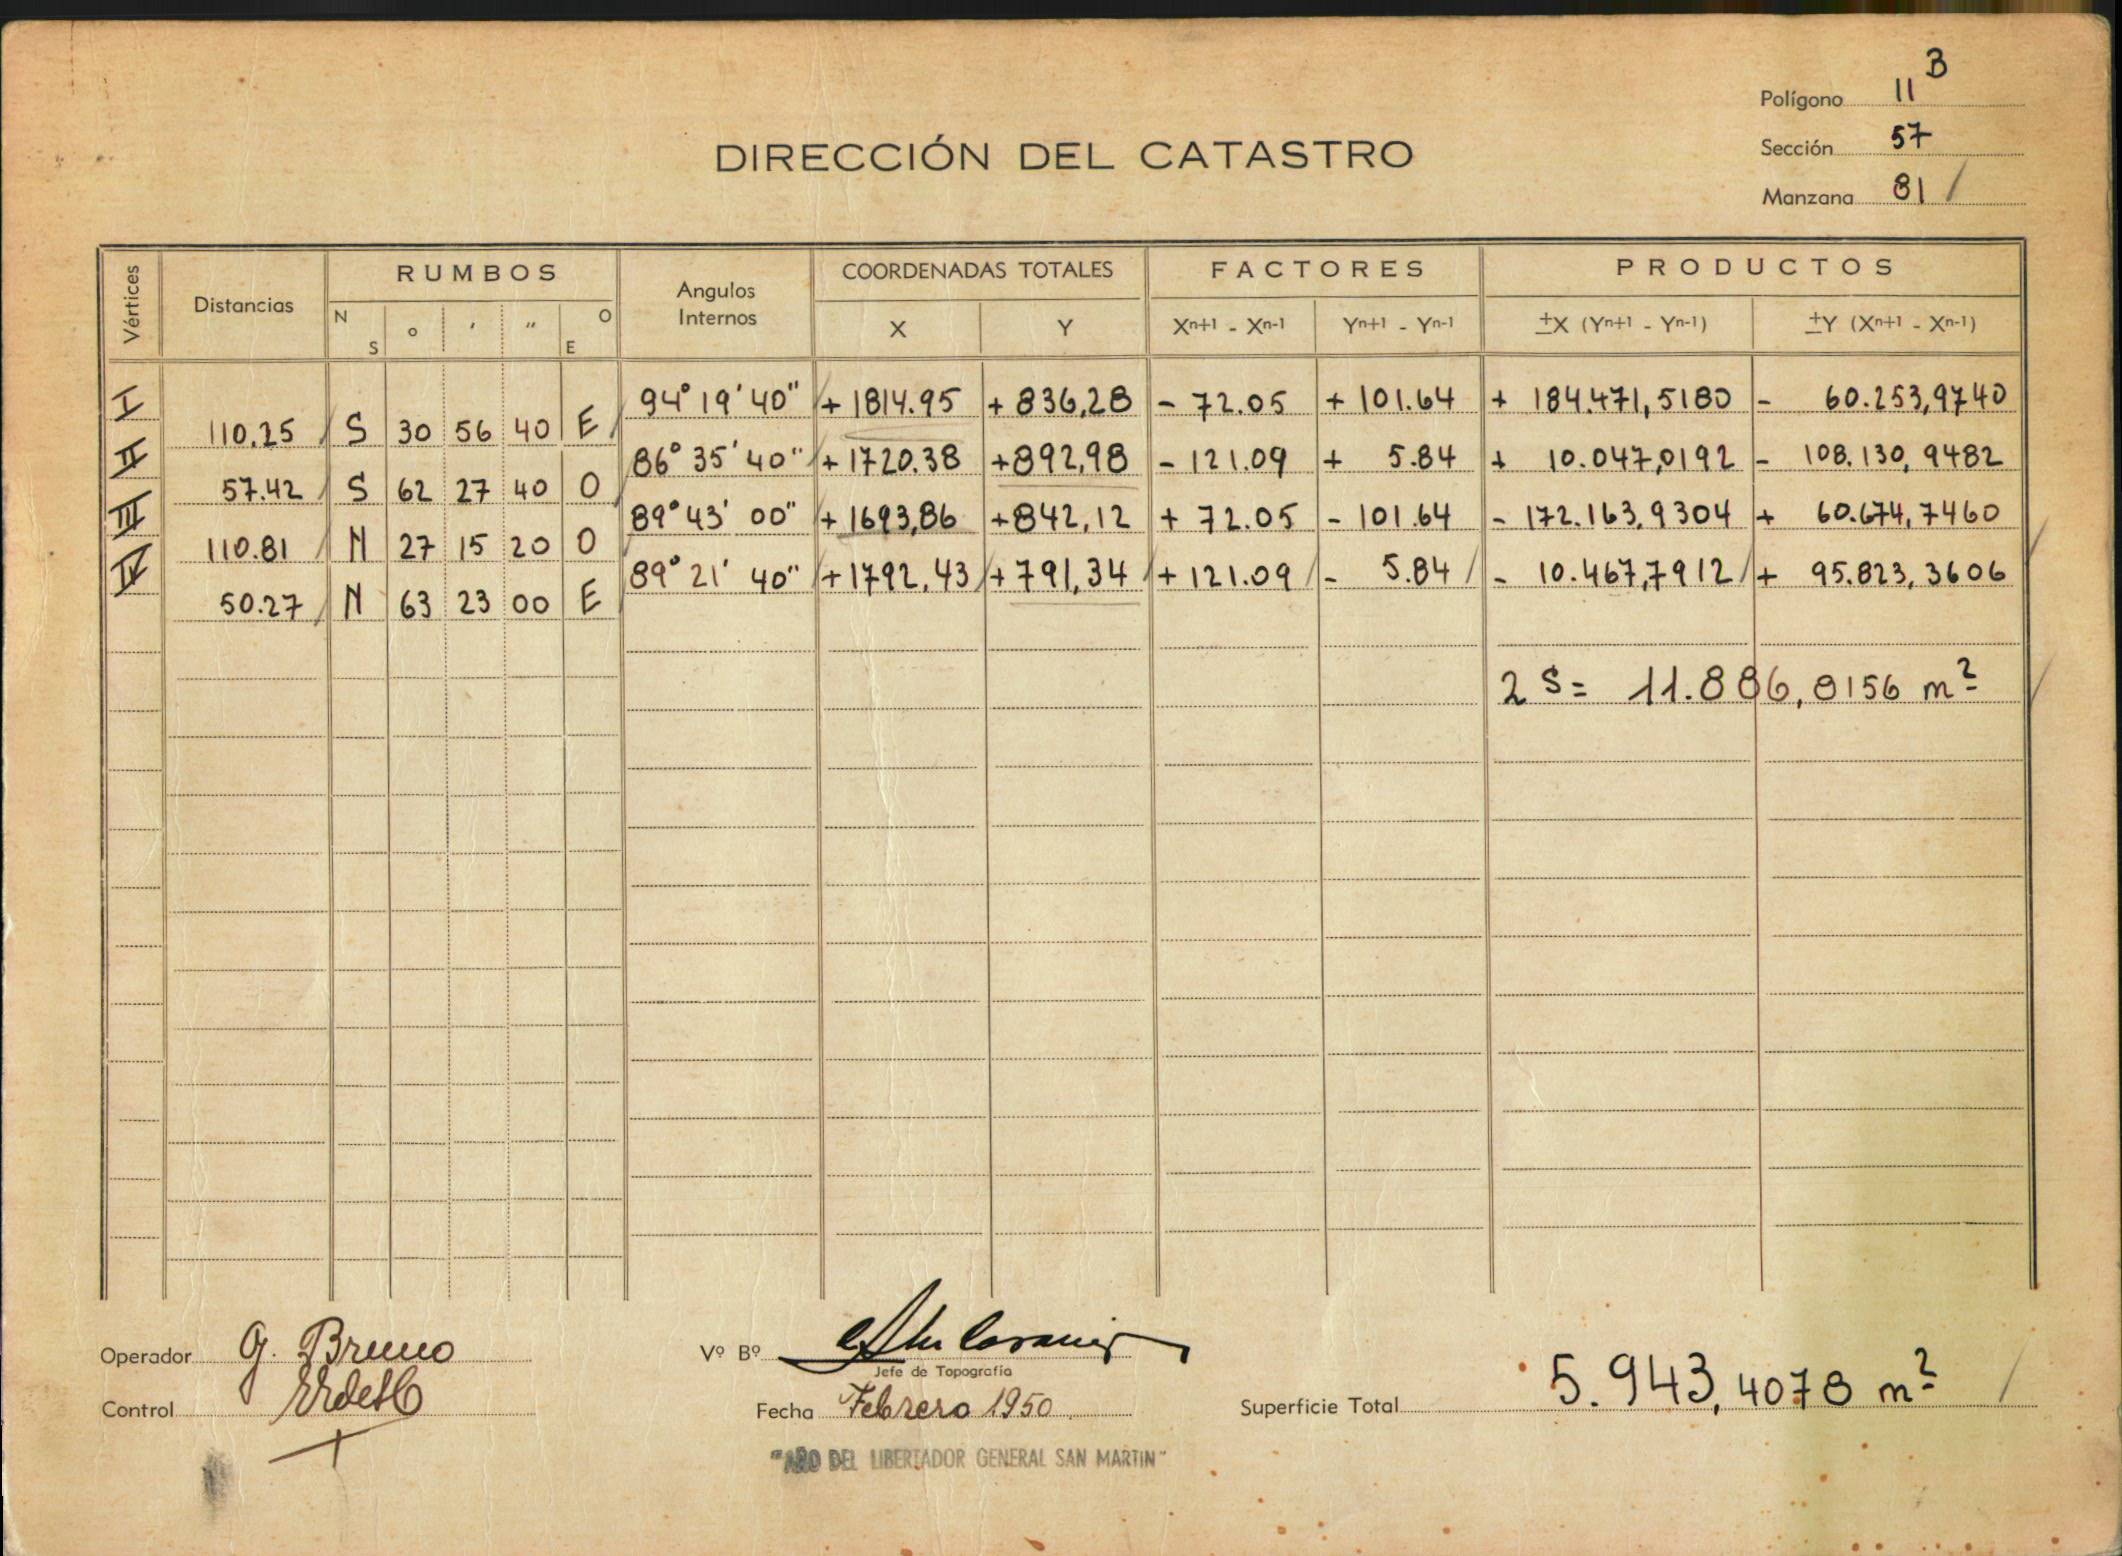 Polígono 11 B
DIRECCIÓN DEL CATASTRO
Sección 57
Manzana 81 /
Vértices Distancias RUMBOS Angulos Internos COORDENADAS TOTALES FACTORES PRODUCTOS
N S ° ' " O E X Y Xn+1 - Xn-1 Yn+1 - Yn-1 ±X (Yn+1 - Yn-1) ±Y (Xn+1 - Xn-1)
I 94° 19' 40" + 1814.95 + 836,28 - 72.05 + 101.64 + 184.471,5180 - 60.253,9740
110.25 S 30 56 40 E
II 86° 35' 40" + 1720.38 + 892,98 - 121.09 + 5.84 + 10.047,0192 - 108.130,9482
57.42 S 62 27 40 O
III 89° 43' 00" + 1693,86 + 842,12 + 72.05 - 101.64 - 172.163,9304 + 60.674,7460
110.81 N 27 15 20 O
IV 89° 21' 40" + 1792,43 + 791,34 + 121.09 - 5.84 - 10.467,7912 + 95.823,3606
50.27 N 63 23 00 E
2 S = 11.886,8156 m²
Operador G. Bruno
Vº Bº
Jefe de Topografía
Control
Fecha Febrero 1950
Superficie Total 5.943,4078 m²
"AÑO DEL LIBERTADOR GENERAL SAN MARTIN"